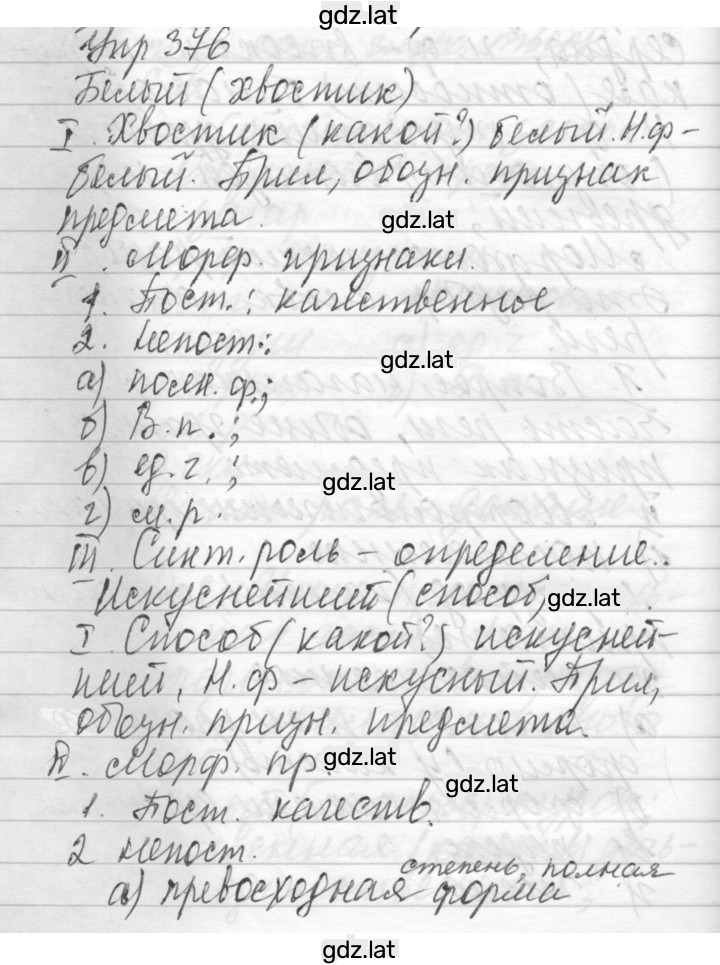 gdz.lat
Упр 376
Белый (хвостик)
I. Хвостик (какой?) белый. Н.ф-
белый. Прил, обозн. признак
предмета. gdz.lat
II. Морф. признаки.
1. Пост.: качественное
2. Непост.:
а) полн. ф.; gdz.lat
б) В.п.;
в) ед.ч.; gdz.lat
г) м.р.
III. Синт. роль - определение.
Искуснейший (способ) gdz.lat
I. Способ (какой?) искусней-
шей, Н.ф - искусный. Прил,
обозн. призн. предмета.
II. Морф. пр. gdz.lat
1. Пост. качеств. gdz.lat
2 непост.
а) превосходная степень, полная форма
gdz.lat